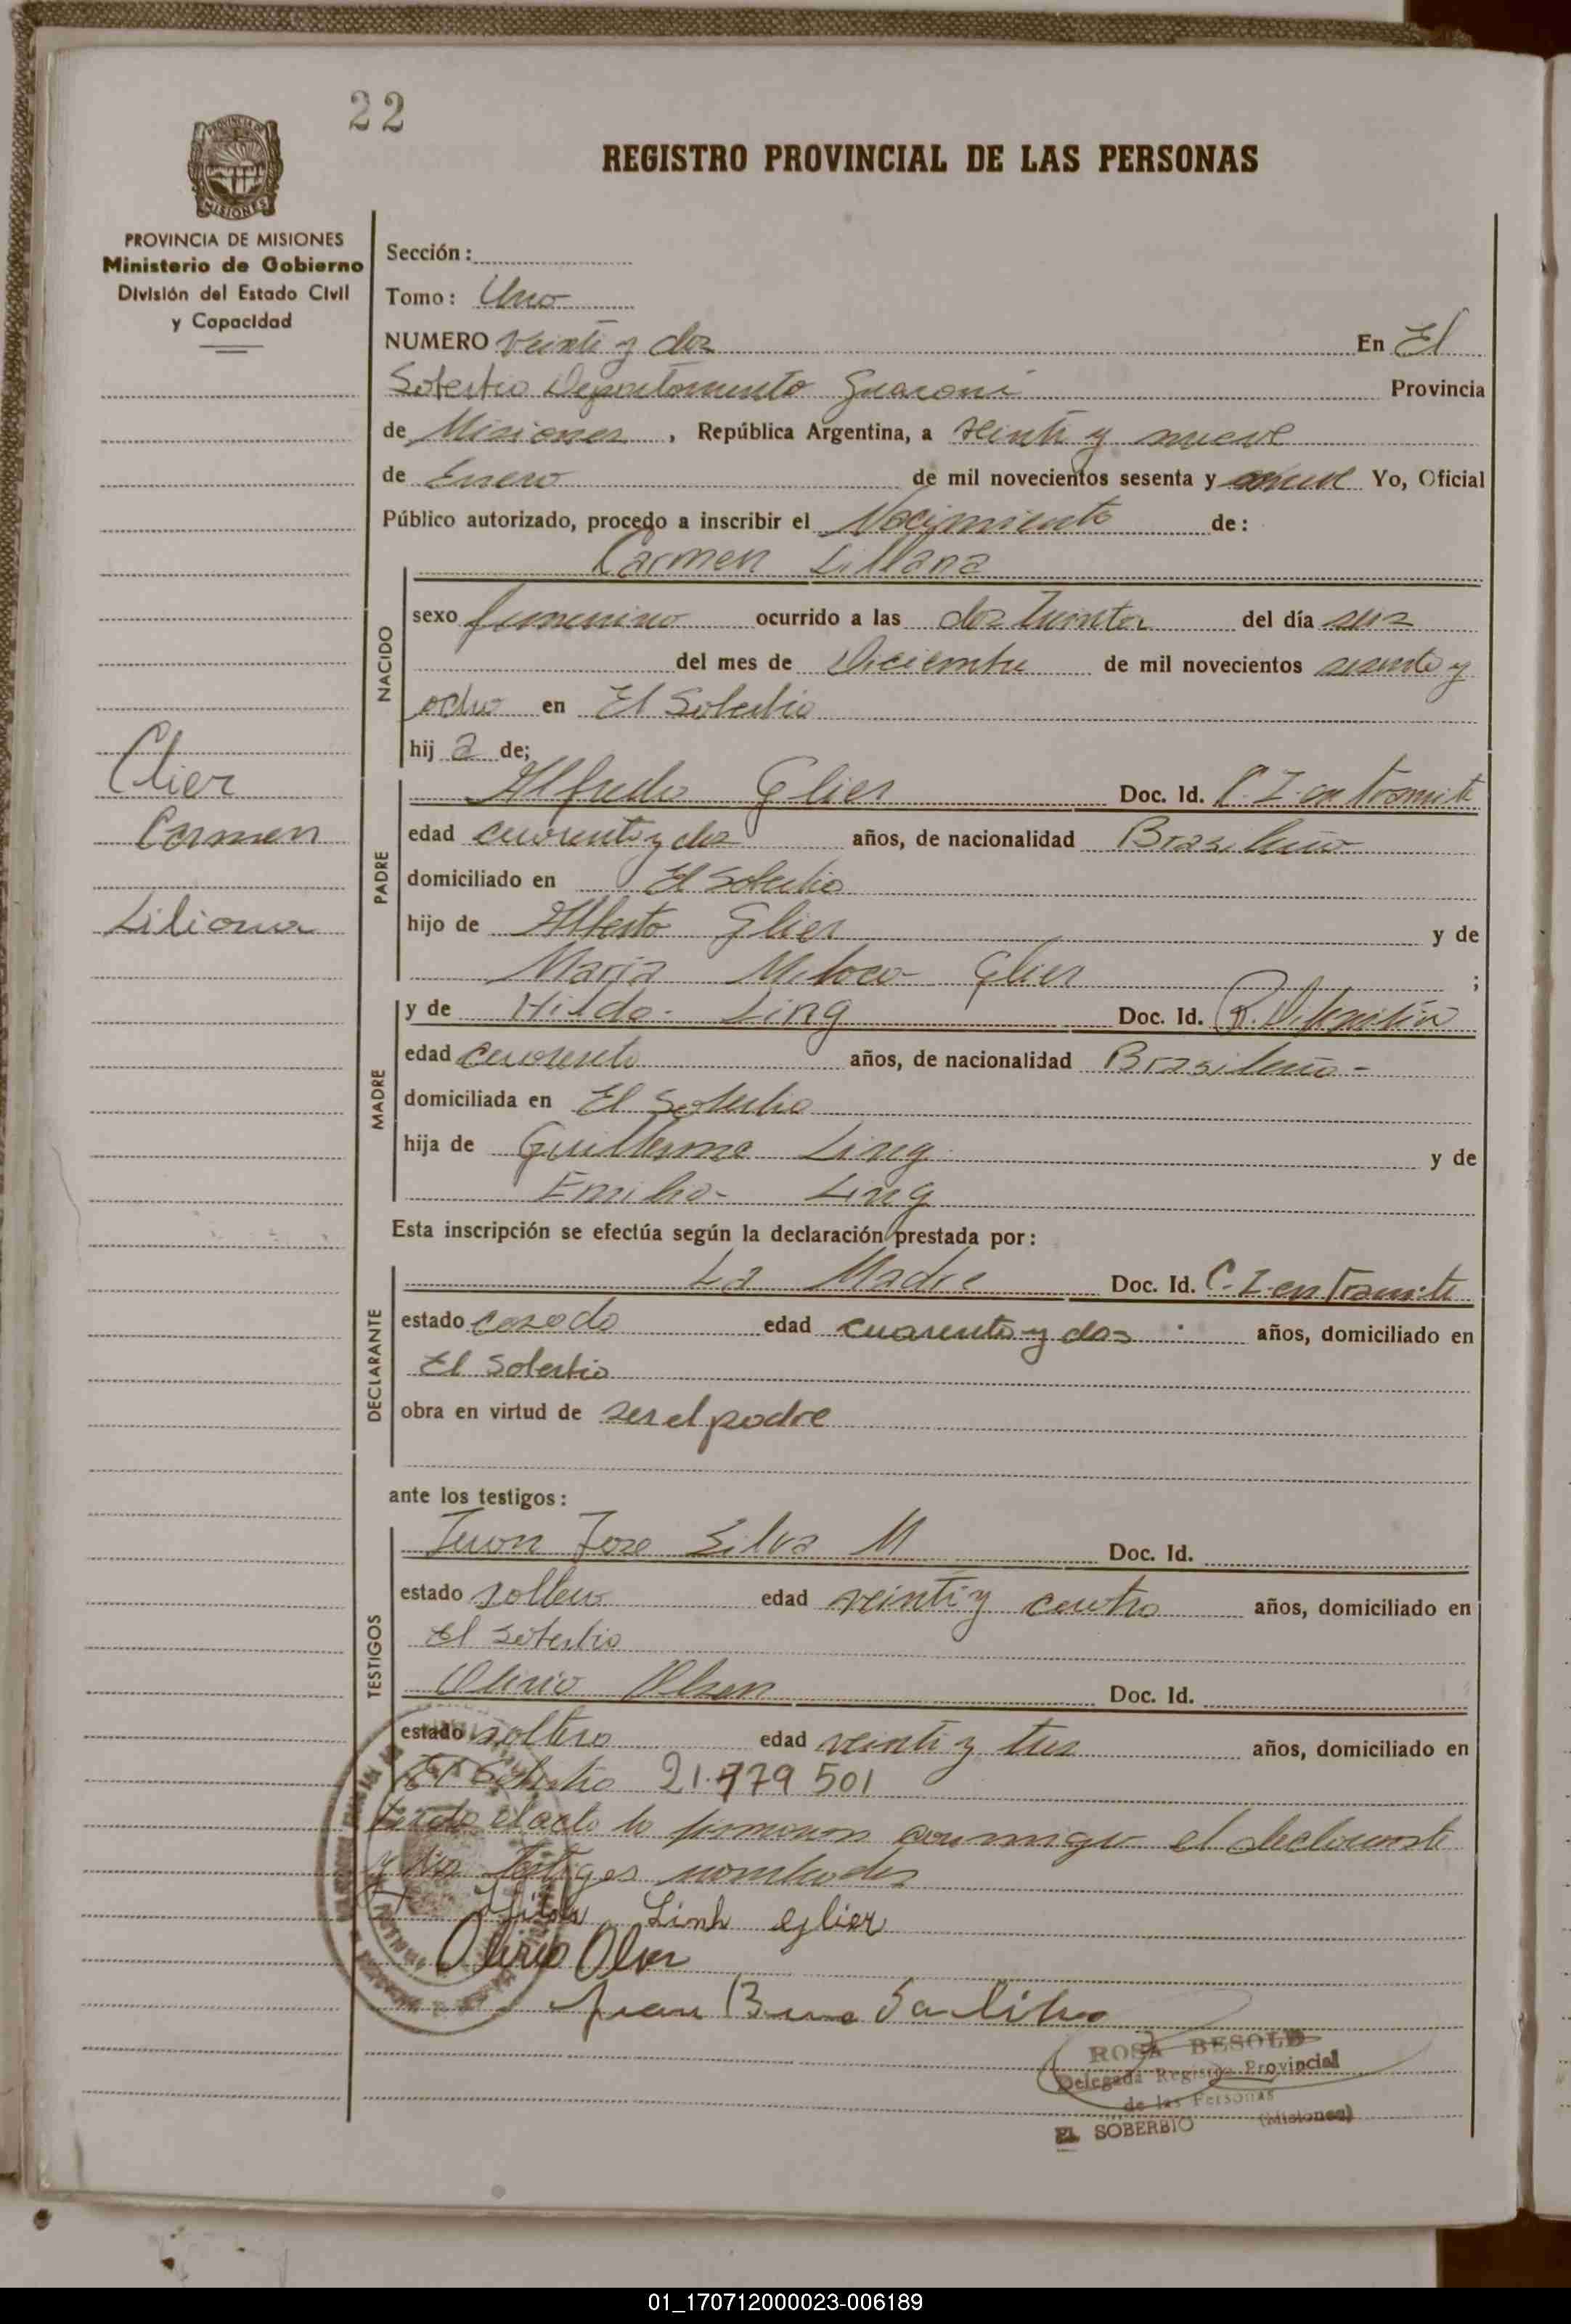 22
REGISTRO PROVINCIAL DE LAS PERSONAS
PROVINCIA DE MISIONES
MISIONES
PROVINCIA DE MISIONES
Ministerio de Gobierno
División del Estado Civil
y Capacidad
Sección:
Tomo: Uno
NUMERO Veinti y dos En El
Soberbio Departamento Guarani Provincia
de Misiones, República Argentina, a veinti y nueve
de Enero de mil novecientos sesenta y nueve Yo, Oficial
Público autorizado, procedo a inscribir el Nacimiento de:
Carmen Liliana
NACIDO
sexo femenino ocurrido a las dos treinta del día seis
del mes de Diciembre de mil novecientos sesenta y
ocho en El Soberbio
hija de;
Glier
Carmen
Liliana
PADRE
Alfredo Glier Doc. Id. C. I en tramite
edad cuarenta y dos años, de nacionalidad Brasileño
domiciliado en El Soberbio
hijo de Alberto Glier y de
Maria Glier ;
MADRE
y de Hilda Ling Doc. Id.
edad cuarenta años, de nacionalidad Brasileña -
domiciliada en El Soberbio
hija de Guillermo Ling y de
Emilia Ling
Esta inscripción se efectúa según la declaración prestada por:
DECLARANTE
La Madre Doc. Id. C. I en Tramite
estado casado edad cuarenta y dos años, domiciliado en
El Soberbio
obra en virtud de ser el padre
ante los testigos:
TESTIGOS
Juan Jose Silva M Doc. Id.
estado soltero edad veinti y cuatro años, domiciliado en
El Soberbio
Olirio Olsen Doc. Id.
estado soltero edad veinti y tres años, domiciliado en
El Soberbio 21.979 501
Leido el acta la firmaron conmigo el declarante
y los testigos nombrados
Hilda Linh Glier
Olirio Olsen
Juan
ROSA BESOLD
Delegada Registro Provincial
de las Personas
EL SOBERBIO (Misiones)
01_170712000023-006189